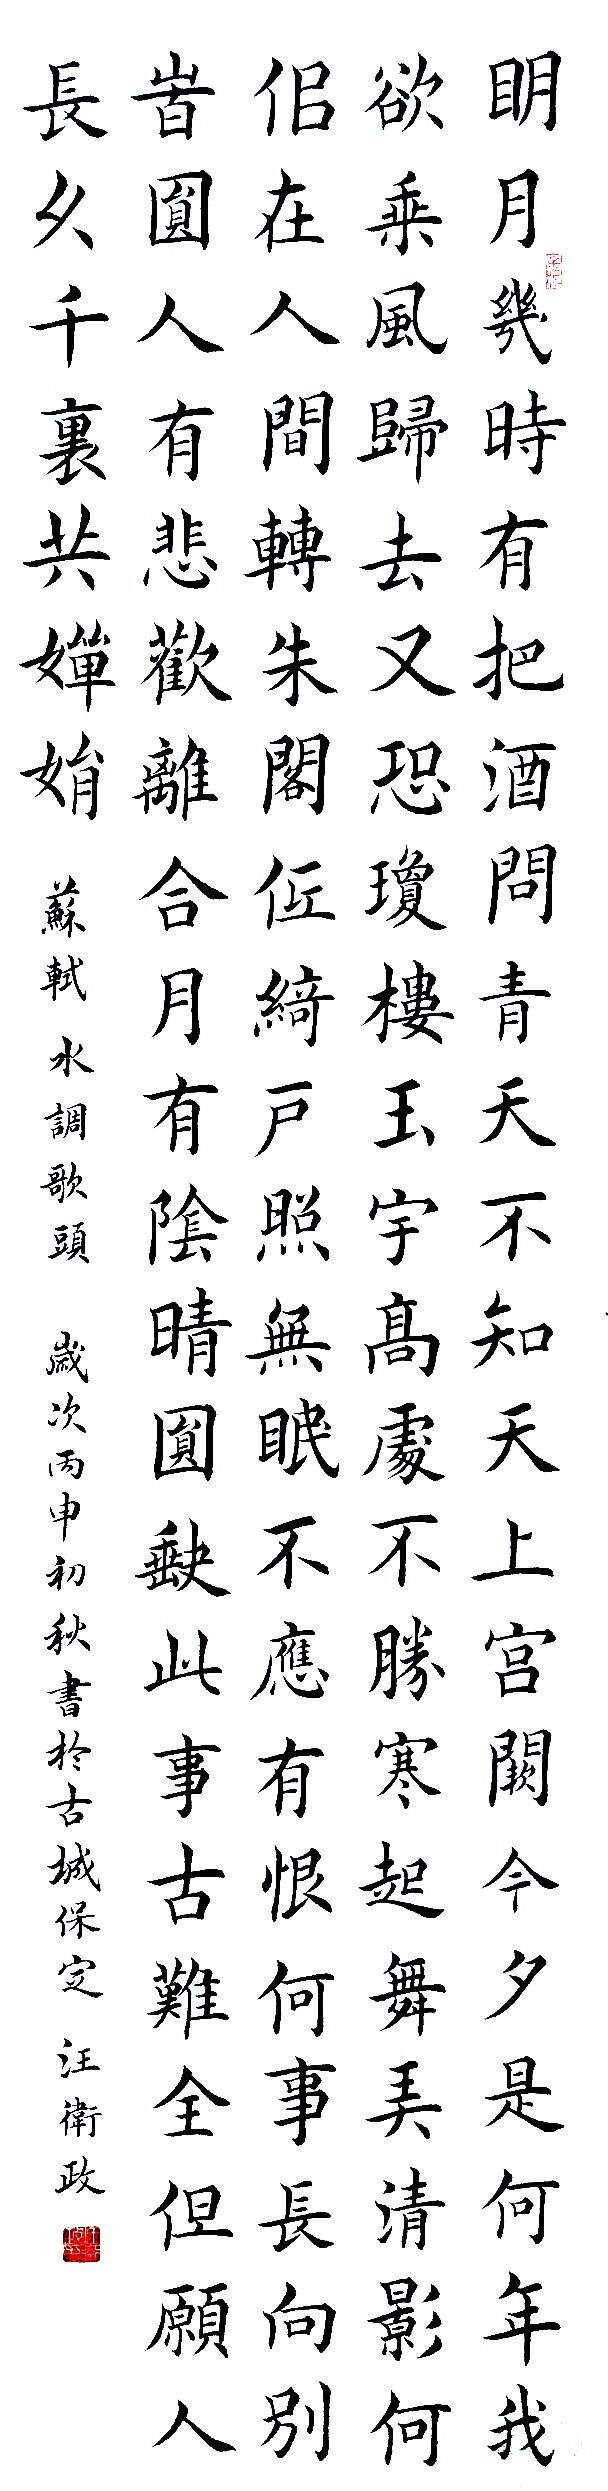 明月幾時有把酒問青天不知天上宮闕今夕是何年我
欲乘風歸去又恐瓊樓玉宇高處不勝寒起舞弄清影何
佀在人間轉朱閣低綺戸照無眠不應有恨何事長向別
旹圓人有悲歡離合月有陰晴圓缺此事古難全但願人
長久千裏共嬋娟
蘇軾 水調歌頭 歲次丙申初秋書於古城保定 汪衛政